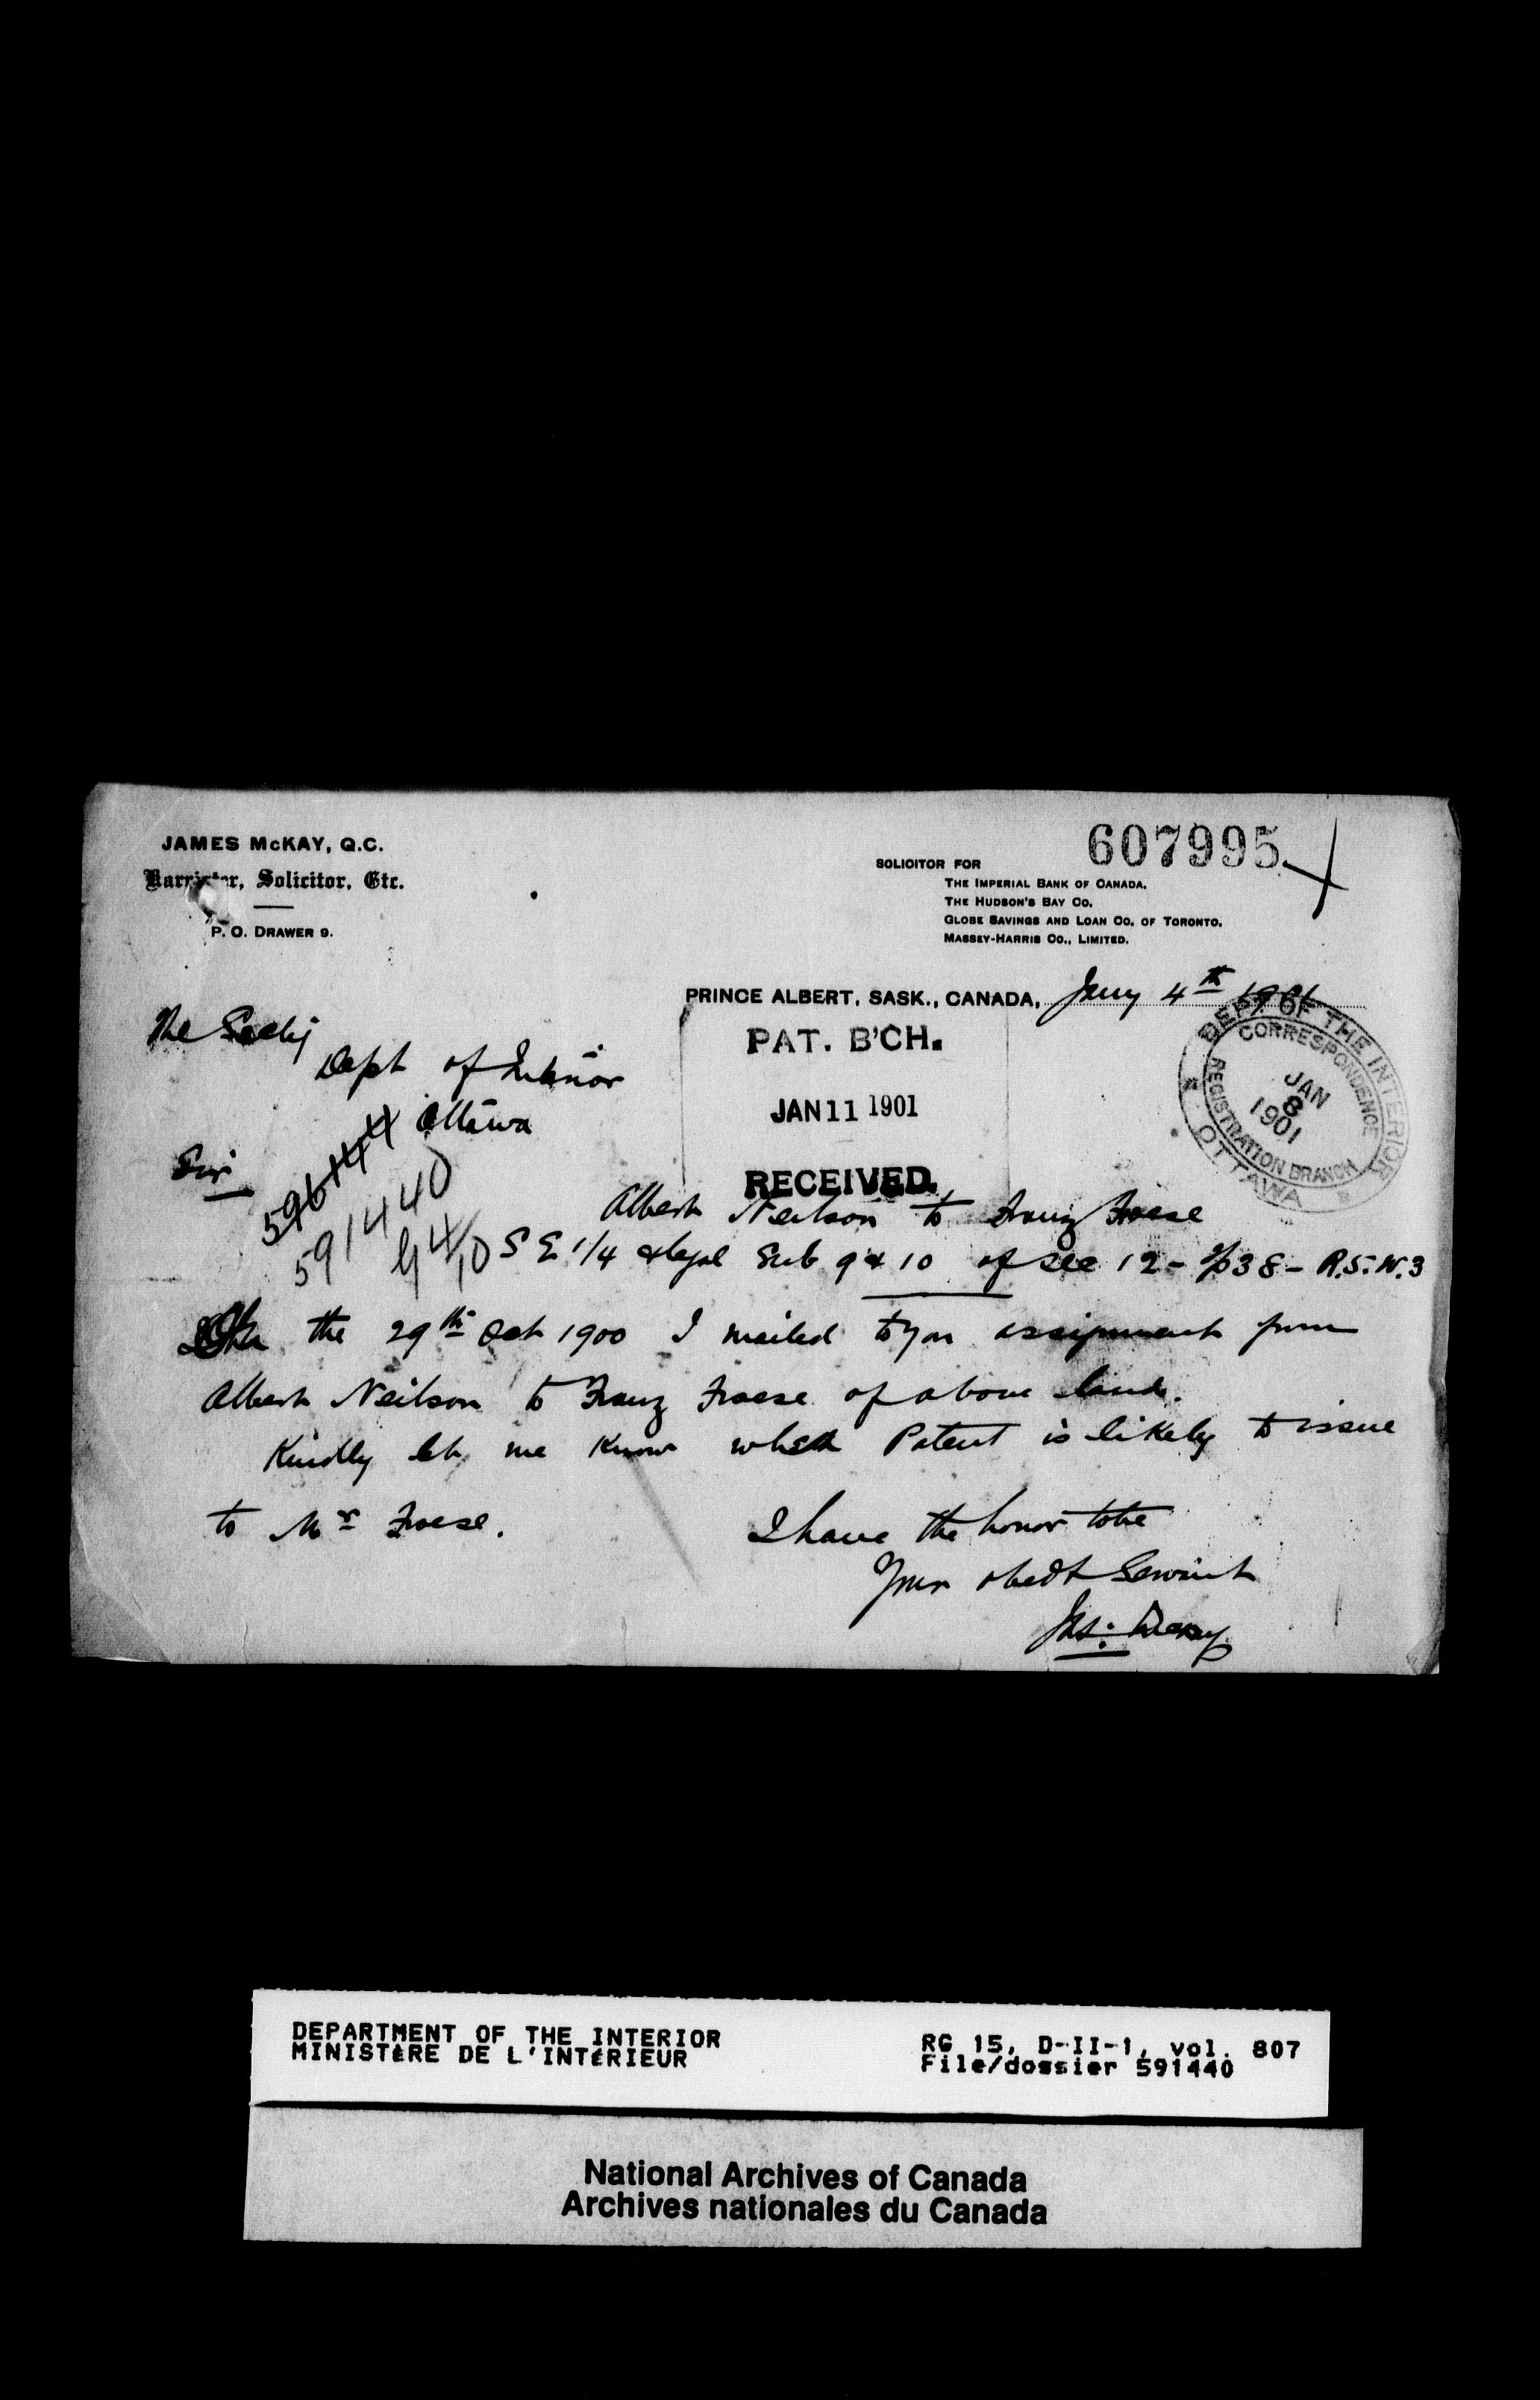 JAMES McKAY, Q.C.
Barrister, Solicitor, Etc.
P. O. DRAWER 9.
607995
SOLICITOR FOR
THE IMPERIAL BANK OF CANADA.
THE HUDSON'S BAY CO.
GLOBE SAVINGS AND LOAN CO. OF TORONTO.
MASSEY-HARRIS CO., LIMITED.
PRINCE ALBERT, SASK., CANADA, Jany 4th 1901
The Secty
Dept of Interior
Ottawa
Sir
PAT. B'CH.
JAN 11 1901
RECEIVED.
DEPT. OF THE INTERIOR
CORRESPONDENCE
REGISTRATION BRANCH
JAN
8
1901
OTTAWA
591440
Albert Neilson to Franz Froese
S E 1/4 & legal Sub 9 & 10 of sec 12 - Tp 38 - R.5.W.3
On the 29th Oct 1900 I mailed to you assignment from
Albert Neilson to Franz Froese of above land.
Kindly let me know when Patent is likely to issue
to Mr Froese.
I have the honor to be
Your obedt Servant
Jas: McKay
DEPARTMENT OF THE INTERIOR
MINISTÈRE DE L'INTÉRIEUR
RG 15, D-II-1, vol. 807
File/dossier 591440
National Archives of Canada
Archives nationales du Canada